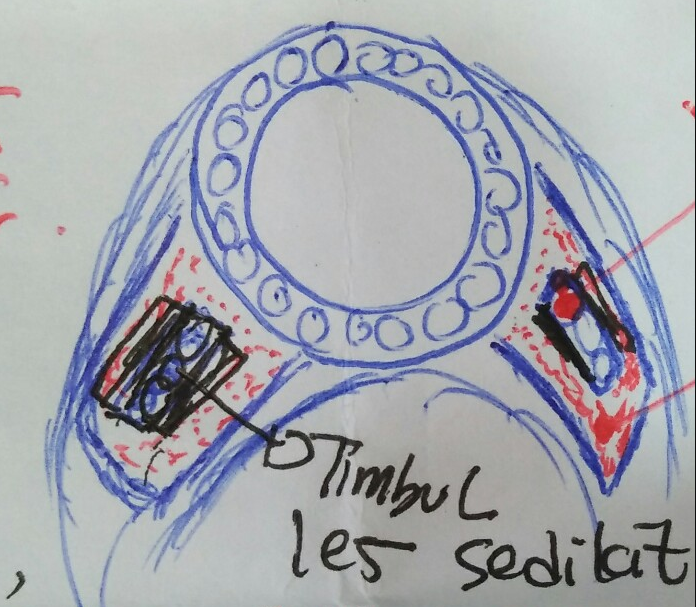 Timbul
les sedikat